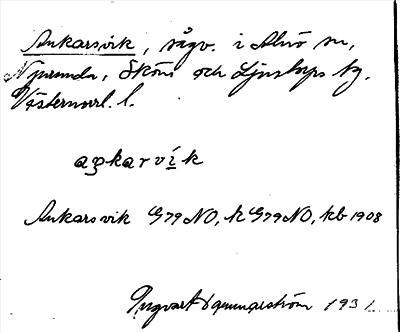 Ankarsvik, sågv. i Alnö sn,
Njurunda, Sköns och Ljustorps tg.
Västernorrl. l.
aŋkarvík
Ankarsvik G79NO, k G79NO, kb 1908
Ingvart 1931